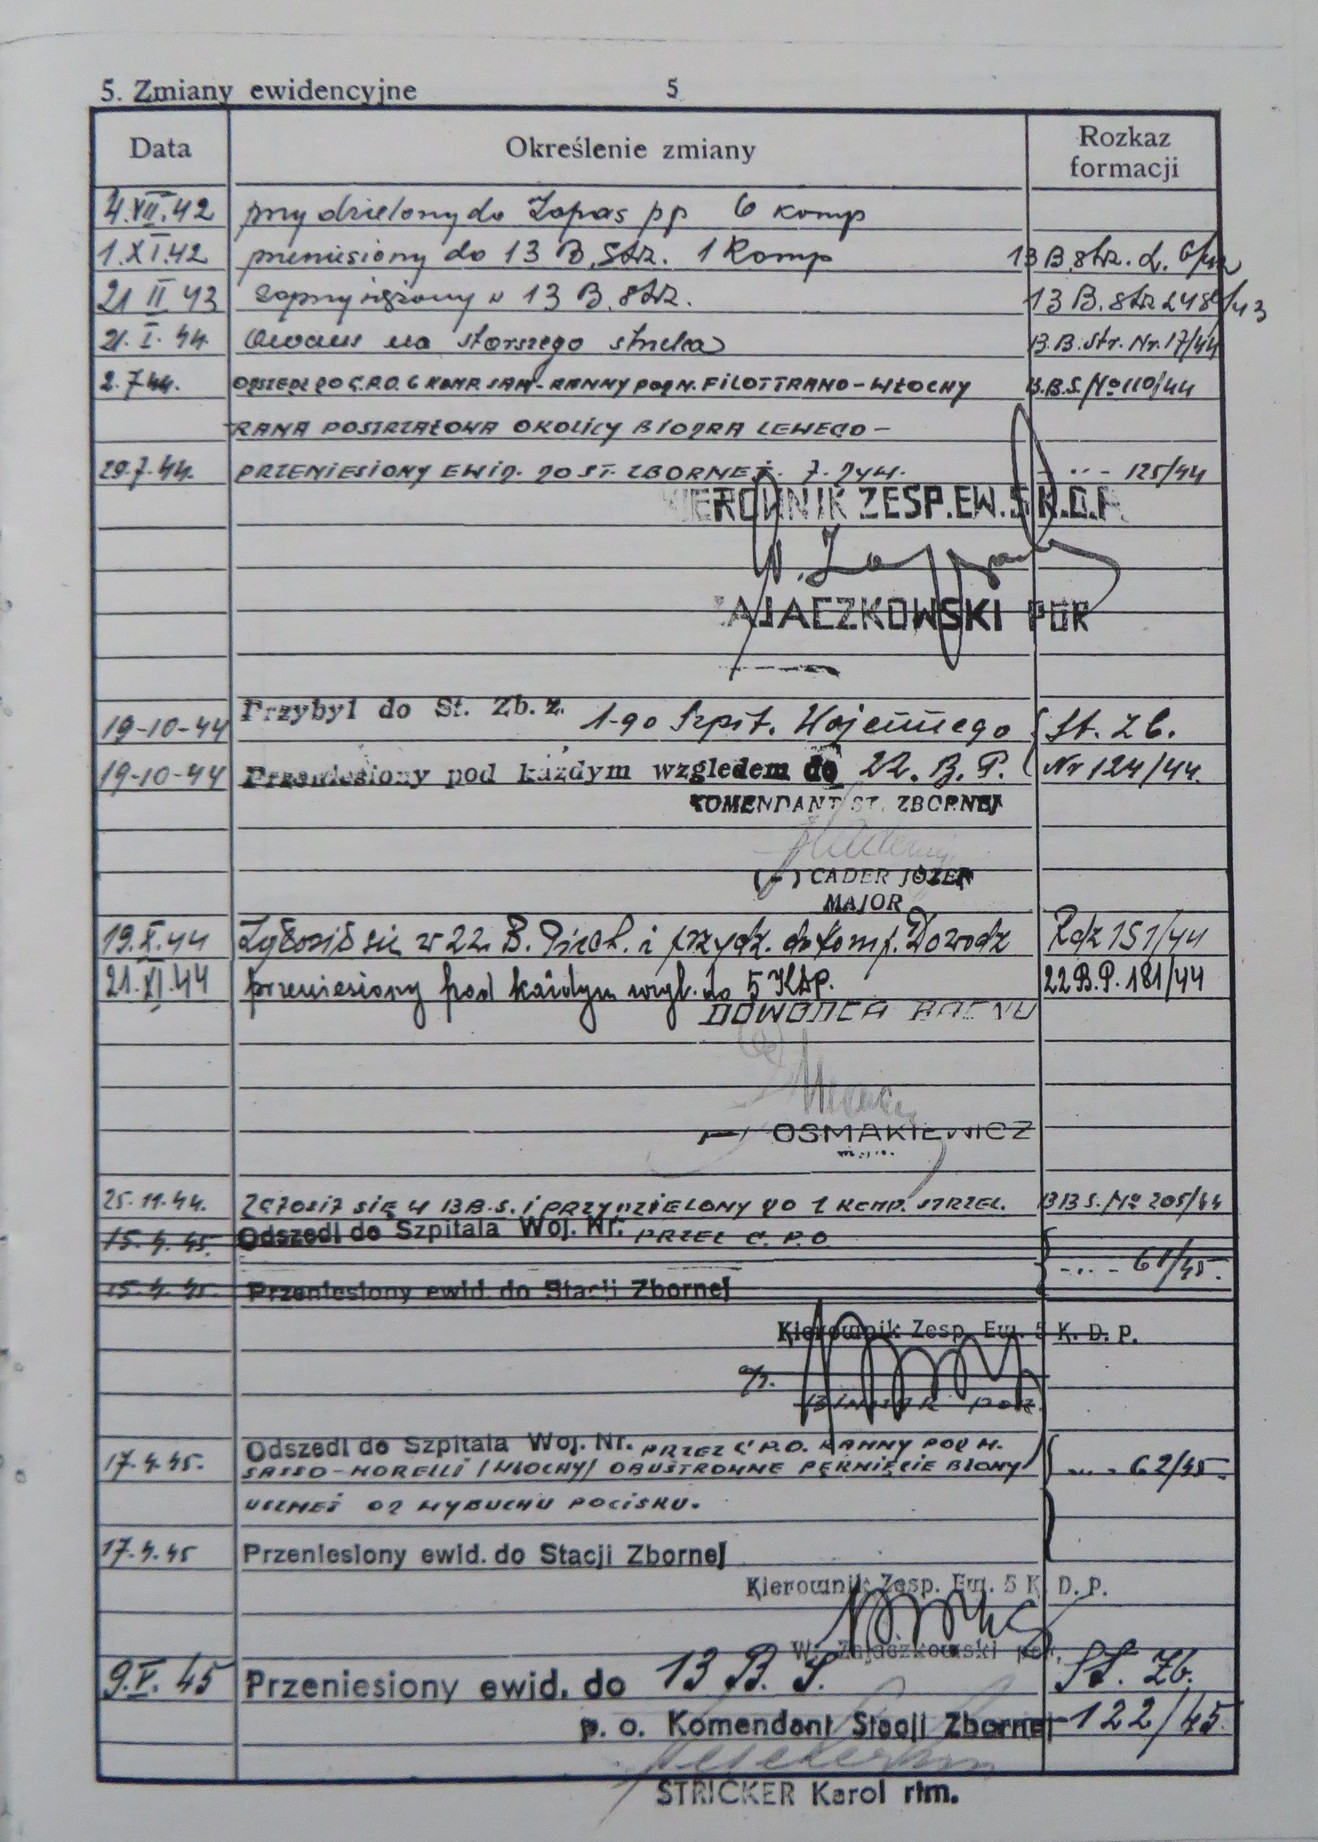 5. Zmiany ewidencyjne 5
Data Określenie zmiany Rozkaz formacji
4.VII.42 przydzielony do Zapas pp 6 komp
1.XI.42 przeniesiony do 13 B.Strz. 1 Komp 13 B.strz. L.
21 II 43 zaprzysiężony w 13 B. strz. 13 B. strz
21. I. 44. awans na starszego strzelca B.B.Str. Nr.17/44
2.7.44. ODSZEDŁ DO C.P.O. 6 KOMP SAN-RANNY POD M. FILOTTRANO-WŁOCHY B.B.S./No 110/44
RANA POSTRZAŁOWA OKOLICY BIODRA LEWEGO-
29.7.44. PRZENIESIONY EWID. DO ST. ZBORNEJ. - " - 125/44
KIEROWNIK ZESP.EW.5 K.D.P.
ZAJACZKOWSKI POR
19-10-44 Przybyl do St. Zb. z. 1-go Szpit. Wojennego St. Zb.
19-10-44 Przeniesiony pod każdym wzgledem do 22. B. P. Nr 124/44.
KOMENDANT ST. ZBORNEJ
(-) CADER JÓZEF
MAJOR
19.X.44 Zgłosił się w 22 B. Piech. i przydz. do komp. Dowodz Rdz 151/44
21.XI.44 przeniesiony pod każdym wzgl. do 5 KDP. 22 B.P. 181/44
DOWÓDCA BAONU
OSMAKIEWICZ
25.11.44. ZGŁOSIŁ SIĘ W 13 B.S. I PRZYDZIELONY DO 1 KOMP. STRZEL. 13 B S./No 205/44
15.4.45. Odszedl do Szpitala Woj. Nr. PRZEZ C.P.O
- " - 61/45.
15.4.45. Przeniesiony ewid. do Stacji Zbornej
Kierownik Zesp. Ew. 5 K. D. P.
17.4.45. Odszedl do Szpitala Woj. Nr. PRZEZ C.P.O. RANNY POD M.
SASSO-MORELLI /WŁOCHY/ OBUSTRONNE PĘKNIĘCIE BŁONY - " - 62/45.
USZNEJ OD WYBUCHU POCISKU.
17.4.45 Przeniesiony ewid. do Stacji Zbornej
Kierownik Zesp. Ew. 5 K. D. P.
W. Zajaczkowski por.
9.V.45 Przeniesiony ewid. do 13 B. S. St. Zb.
p. o. Komendant Stacji Zbornej 122/45
STRICKER Karol rtm.